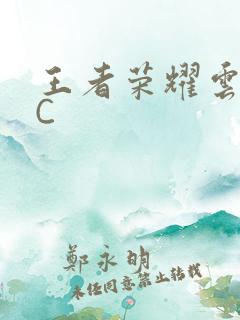 王者荣耀雲
C
鄭永明
未经同意禁止转载